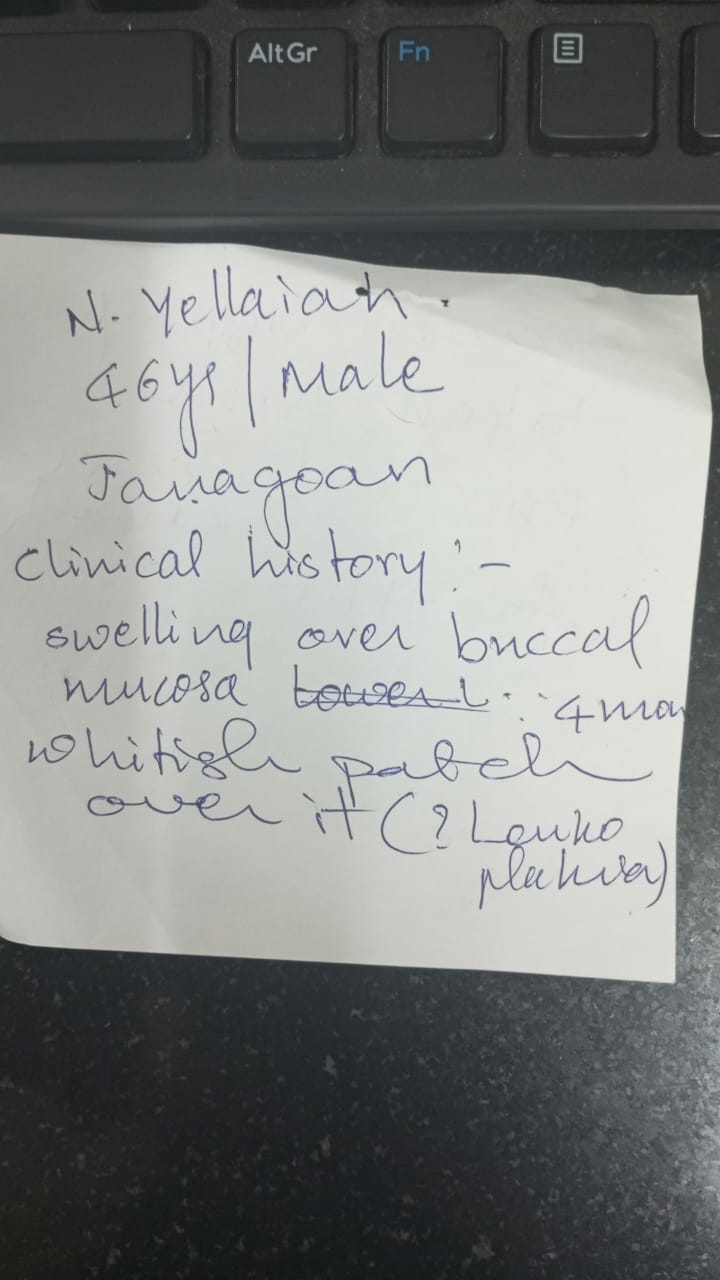 AltGr Fn
N. Yellaiah.
46ys/Male
Janagoan
clinical history:-
swelling over buccal
mucosa 4mon
whitish patch
over it (? Leuko
plakia)